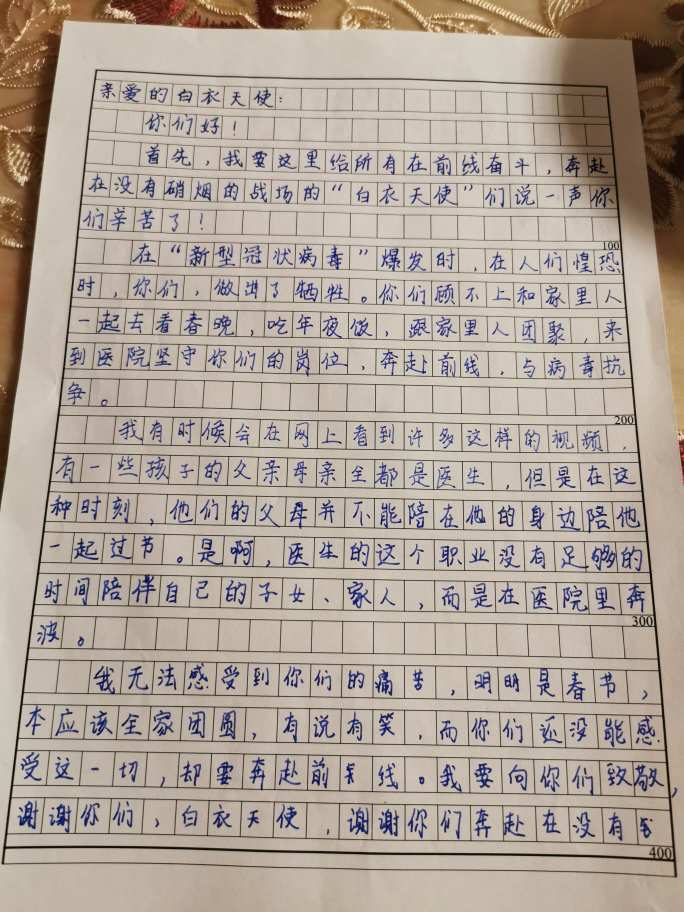 亲爱的白衣天使:
你们好!
首先,我要这里给所有在前线奋斗,奔赴
在没有硝烟的战场的“白衣天使”们说一声你
们辛苦了!
100
在“新型冠状病毒”爆发时,在人们惶恐
时,你们,做出了牺牲。你们顾不上和家里人
一起去看春晚,吃年夜饭,跟家里人团聚,来
到医院坚守你们的岗位,奔赴前线,与病毒抗
争。
200
我有时候会在网上看到许多这样的视频,
有一些孩子的父亲母亲全都是医生,但是在这
种时刻,他们的父母并不能陪在他的身边陪他
一起过节。是啊,医生的这个职业没有足够的
时间陪伴自己的子女、家人,而是在医院里奔
300
波。
我无法感受到你们的痛苦,明明是春节,
本应该全家团圆,有说有笑,而你们还没能感
受这一切,却要奔赴前线。我要向你们致敬,
谢谢你们,白衣天使,谢谢你们奔赴在没有
400